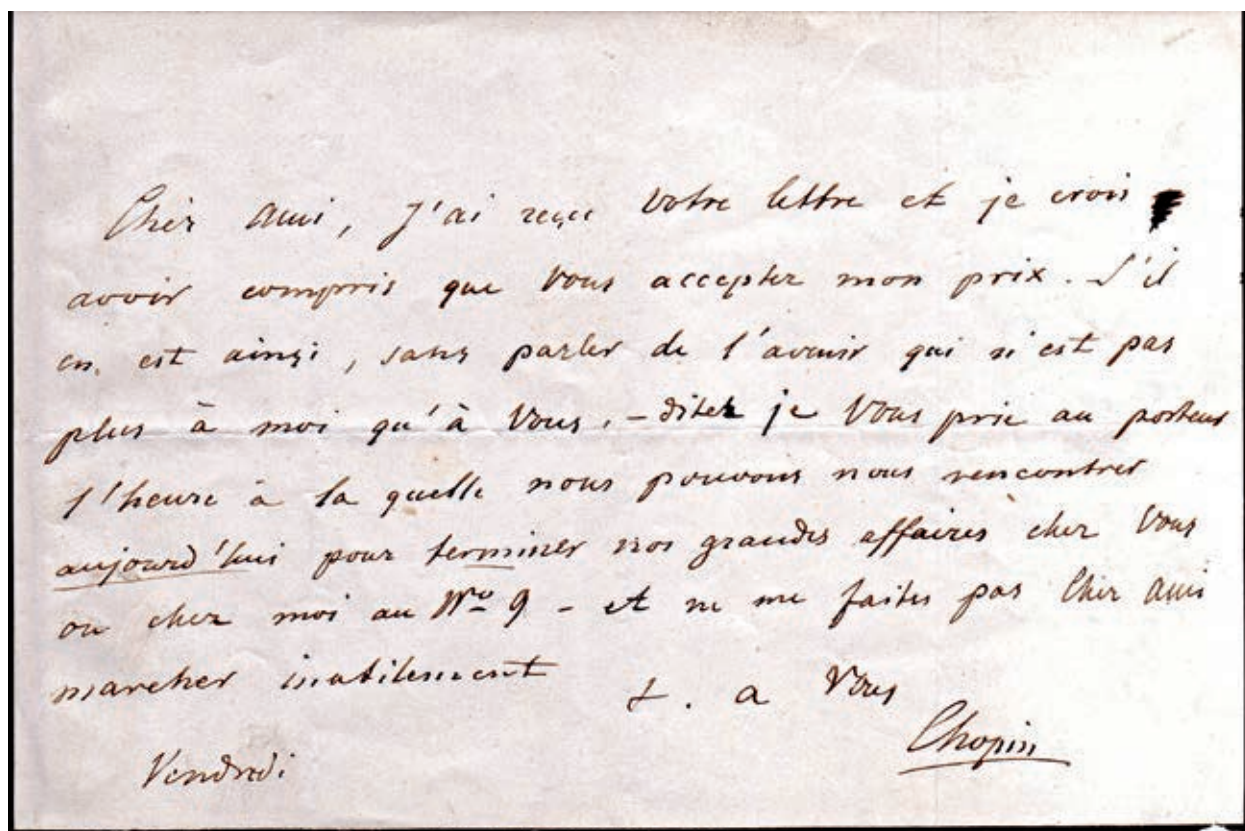 Cher Ami, J'ai reçu votre lettre et je crois
avoir compris que Vous acceptez mon prix. S'il
en est ainsi, sans parler de l'avenir qui n'est pas
plus à moi qu'à Vous, - dites je Vous prie au porteur
l'heure à la quelle nous pouvons nous rencontrer
aujourd'hui pour terminer nos grandes affaires chez Vous
ou chez moi au No 9 - et ne me faites pas Cher Ami
marcher inutilement
t. a Vous
Chopin
Vendredi